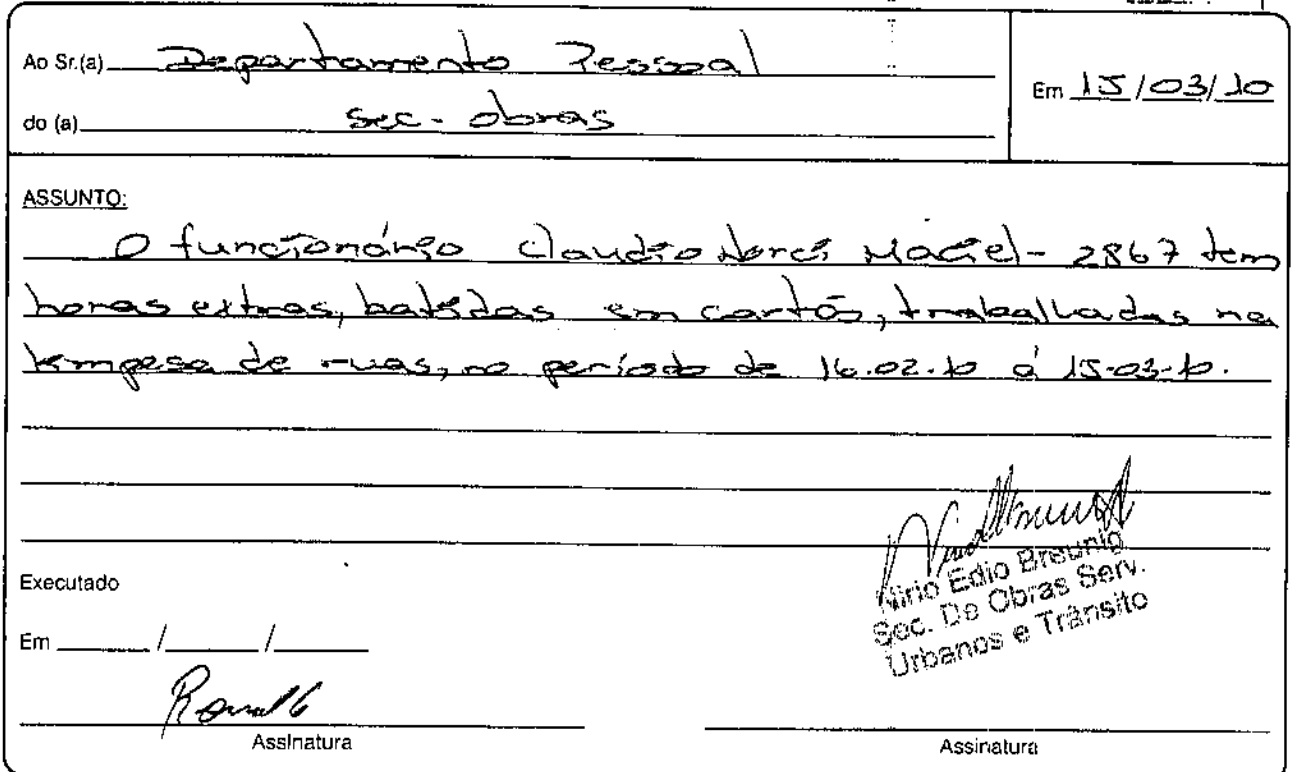 Ao Sr.(a) Departamento Pessoal
do (a) Sec. obras
Em 15/03/10
ASSUNTO:
O funcionário Claudio Norci Maciel - 2867 tem
horas extras, batidas em cartão, trabalhadas na
limpesa de ruas, no período de 16.02.10 á 15.03.10.
Nirio Edio Breunig
Sec. De Obras Serv.
Urbanos e Trânsito
Executado
Em / /
Assinatura
Assinatura